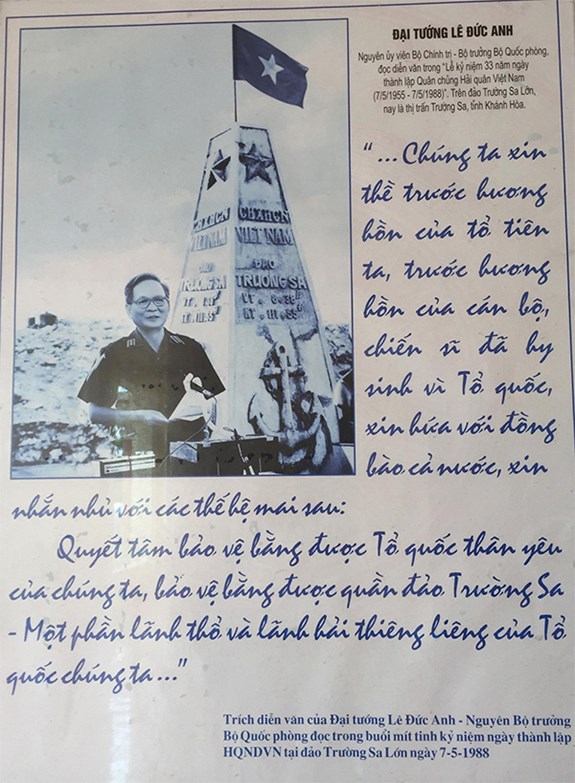 ĐẠI TƯỚNG LÊ ĐỨC ANH
Nguyên ủy viên Bộ Chính trị - Bộ trưởng Bộ Quốc phòng,
đọc diễn văn trong "Lễ kỷ niệm 33 năm ngày
thành lập Quân chủng Hải quân Việt Nam
(7/5/1955 - 7/5/1988)". Trên đảo Trường Sa Lớn,
nay là thị trấn Trường Sa, tỉnh Khánh Hòa.
CHXHCN
VIỆT NAM
ĐẢO
TRƯỜNG SA
CHXHCN
VIỆT NAM
ĐẢO
TRƯỜNG SA
“ ... Chúng ta xin
thề trước hương
hồn của tổ tiên
ta, trước hương
hồn của cán bộ,
chiến sĩ đã hy
sinh vì Tổ quốc,
xin hứa với đồng
bào cả nước, xin
nhắn nhủ với các thế hệ mai sau:
Quyết tâm bảo vệ bằng được Tổ quốc thân yêu
của chúng ta, bảo vệ bằng được quần đảo Trường Sa
- Một phần lãnh thổ và lãnh hải thiêng liêng của Tổ
quốc chúng ta ...”
Trích diễn văn của Đại tướng Lê Đức Anh - Nguyên Bộ trưởng
Bộ Quốc phòng đọc trong buổi mít tinh kỷ niệm ngày thành lập
HQNDVN tại đảo Trường Sa Lớn ngày 7-5-1988